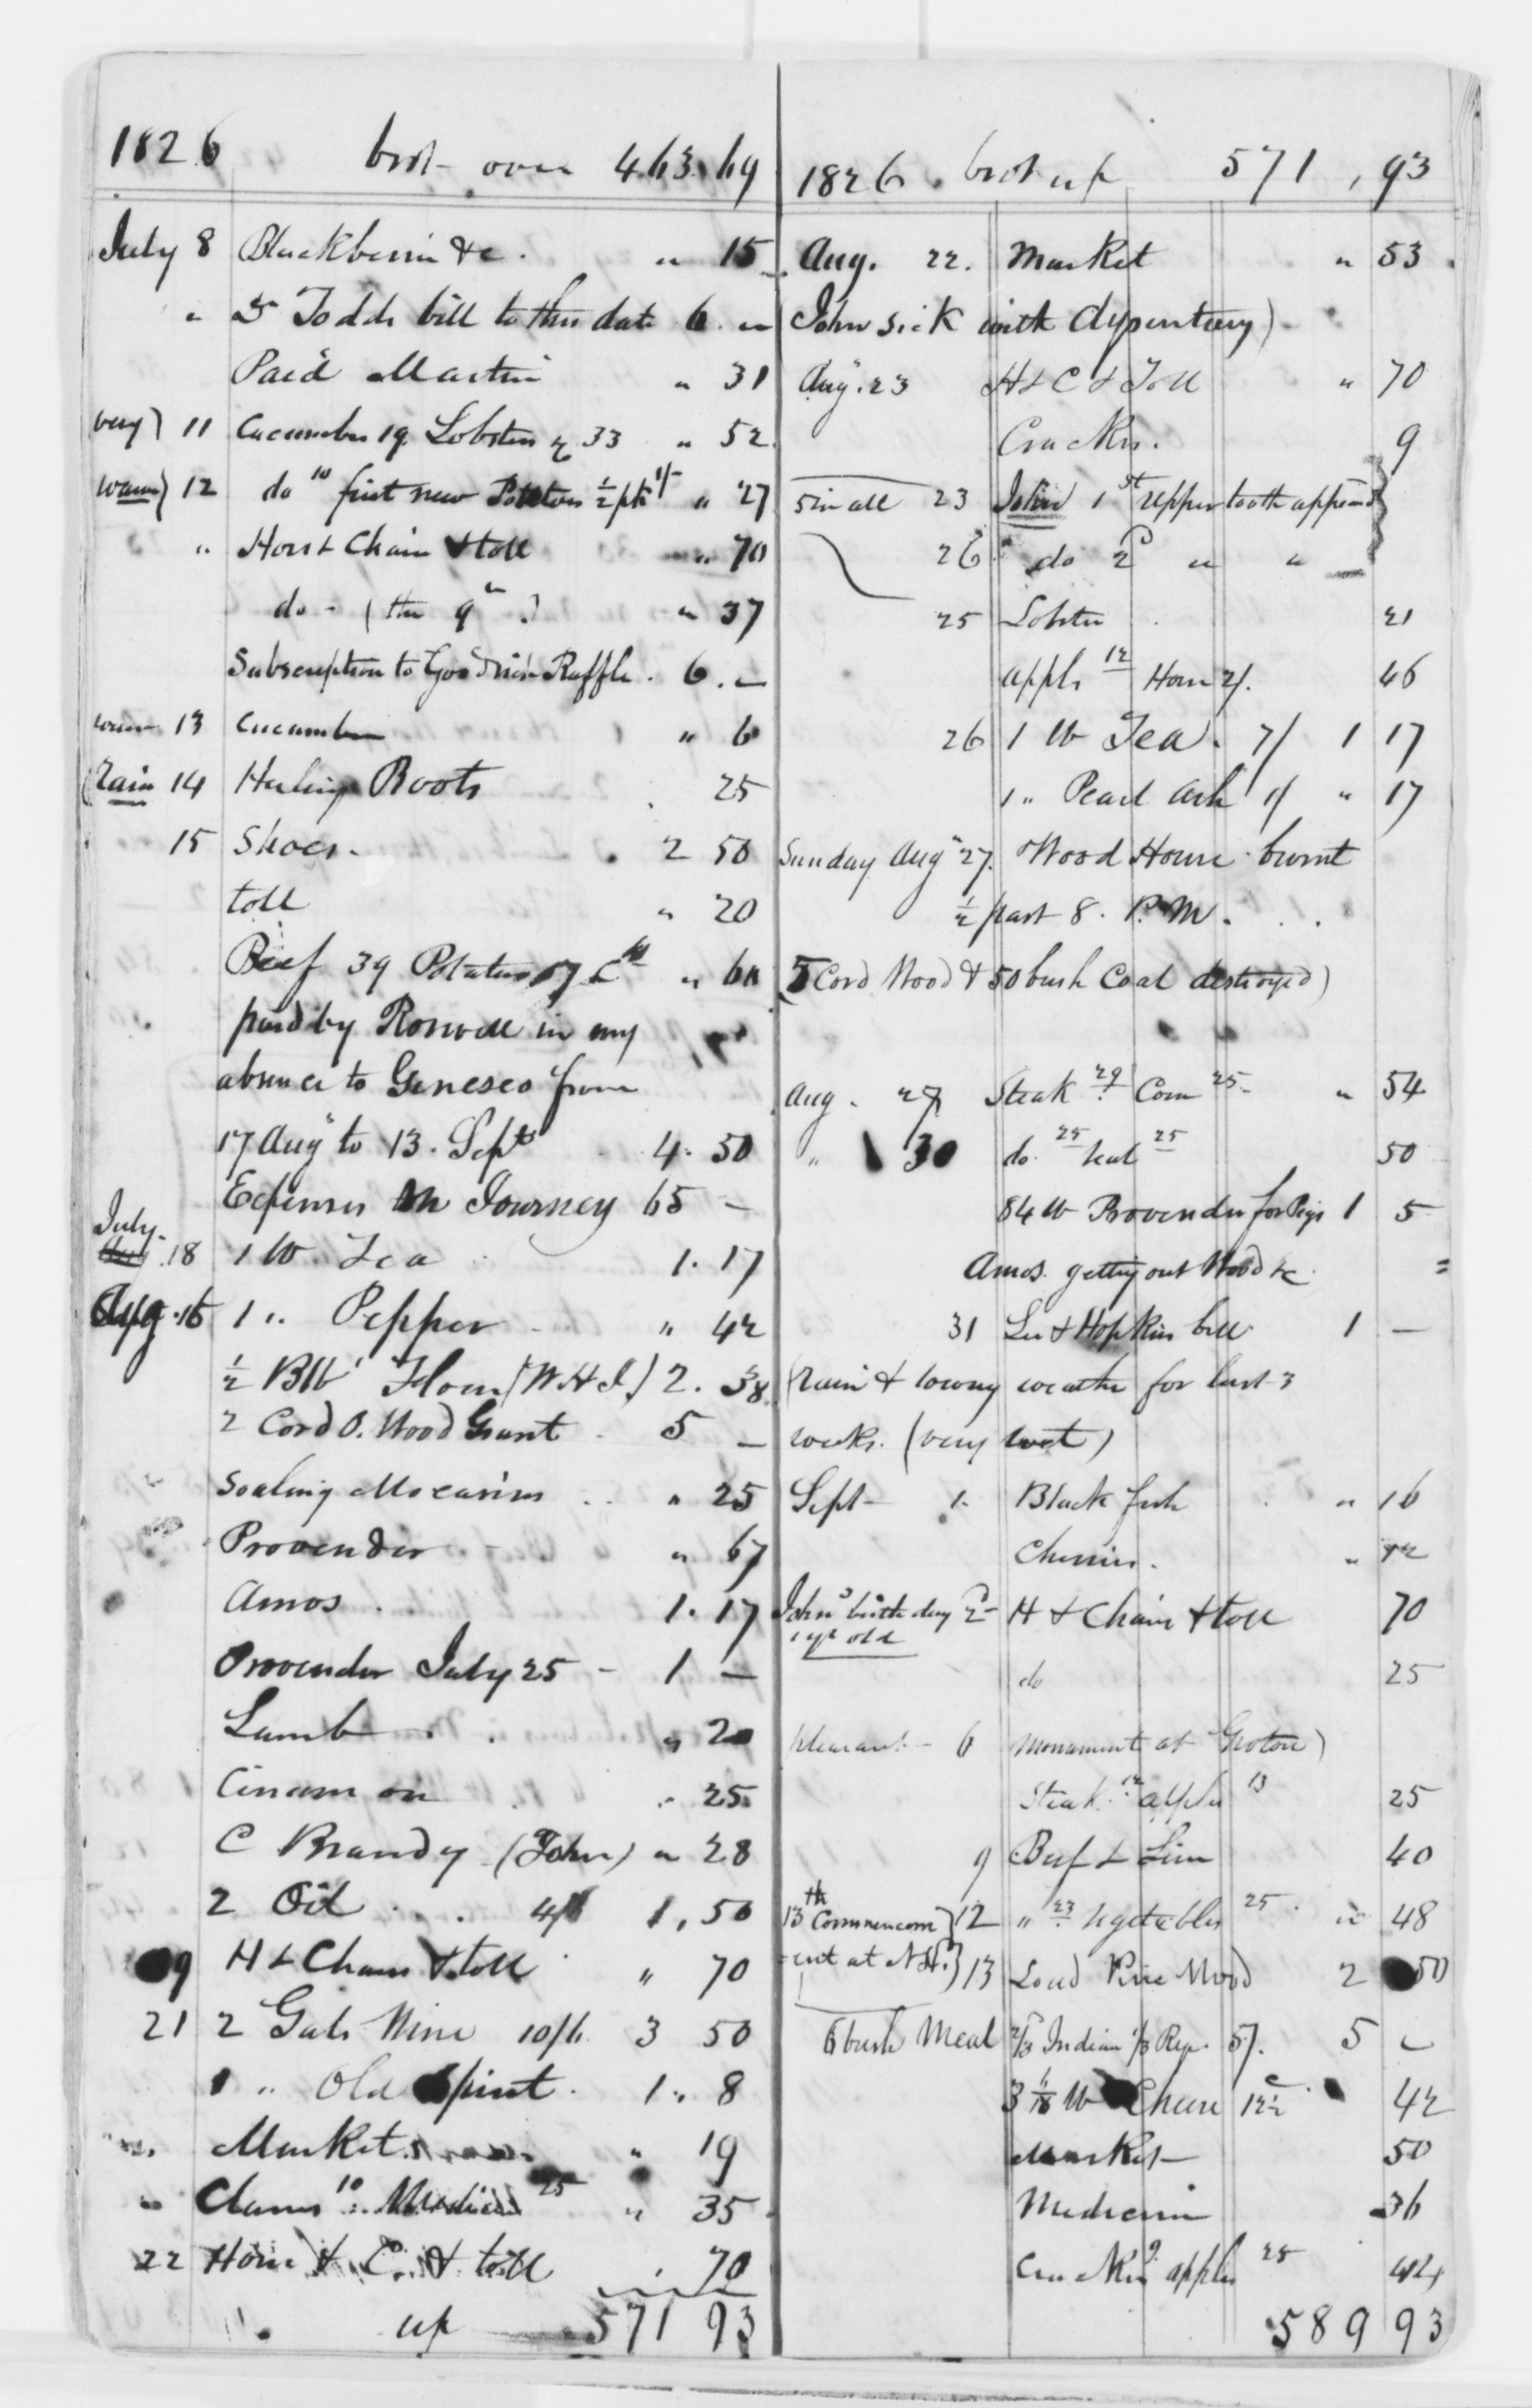 1826 brot over 463.69
July 8 Blackberries &c. " 15
" Dr Todds bill to this date 6. "
Paid Martin " 31
very) 11 Cucumber 19. Lobster 33 " 52
warm) 12 do 10 first new Potatoes ½ pk 1/- " 27
" Horse & Chair & toll " 70
do - (the 9th) " 37
Subscription to Goodrich Raffle. 6. –
warm 13 Cucumber " 6
(rain 14 Heeling Boots 25
15 Shoes 2 50
toll " 20
Beef 39 Potatoes 17 " 60
paid by Roswell in my
absence to Geneseo from
17 Aug to 13. Sept 4. 50
Expenses on Journey 65 –
July 18 1 lb. Tea 1. 17
Aug. 16 1 ". Pepper " 42
½ Bbl Flour (W H J) 2. 38
2 Cord O. Wood Grant 5 –
Soaling Mocasins " 25
Provender " 67
Amos 1. 17
Provender July 25 - 1 –
Lamb " 20
Cinamon " 25
C Brandy (John) " 28
2 Oil 4/6 1, 50
19 H & Chair & toll " 70
21 2 Gals Wine 10/6 3 50
1 " Old Spirit 1. 8
Market " 19
" Clams 10 Medicine 25 " 35
22 Horse & C. & toll 70
up 571 93
1826. brot up 571, 93
Aug. 22. Market " 53
John sick with dysentery)
Aug. 23 H & C & Toll " 70
Crackers. 9
5 in all 23 John 1st Upper tooth appeard
26 do 2d " "
25 Lobster 21
apples 12 Horse 2/. 46
26 1 lb Tea. 7/ 1 17
1 " Pearl ash 1/ " 17
Sunday Aug 27. Wood House burnt
½ past 8. P.M.
(5 Cord Wood & 50 bush Coal destroyed)
Aug. 29 Steak 29 Corn 25 " 54
" 30 do. 25 Veal 25 50
84 lb Provender for Pigs 1 5
Amos. getting out Wood &c
31 Lee & Hopkins bill 1 –
(rain & lowry weather for last 3
weeks. (very wet)
Sept - 1. Black fish " 16
Cherries. " 12
Johns birth day 2d H & Chair & toll 70
1 yr old
do 25
pleasant - 6 Monument at Groton)
Steak 12 apples 13 25
9 Beef & Lime 40
13th Commencem } 12 " 23 vegetables 25 " 48
-ent at N H. } 13 Load Pine Wood 2 50
6 bush Meal 2/3 Indian 1/3 Rye. 5/. 5 –
lb Cheese 12½ c 42
Market 50
Medicine 36
Crackers 9 apples 25 44
589 93